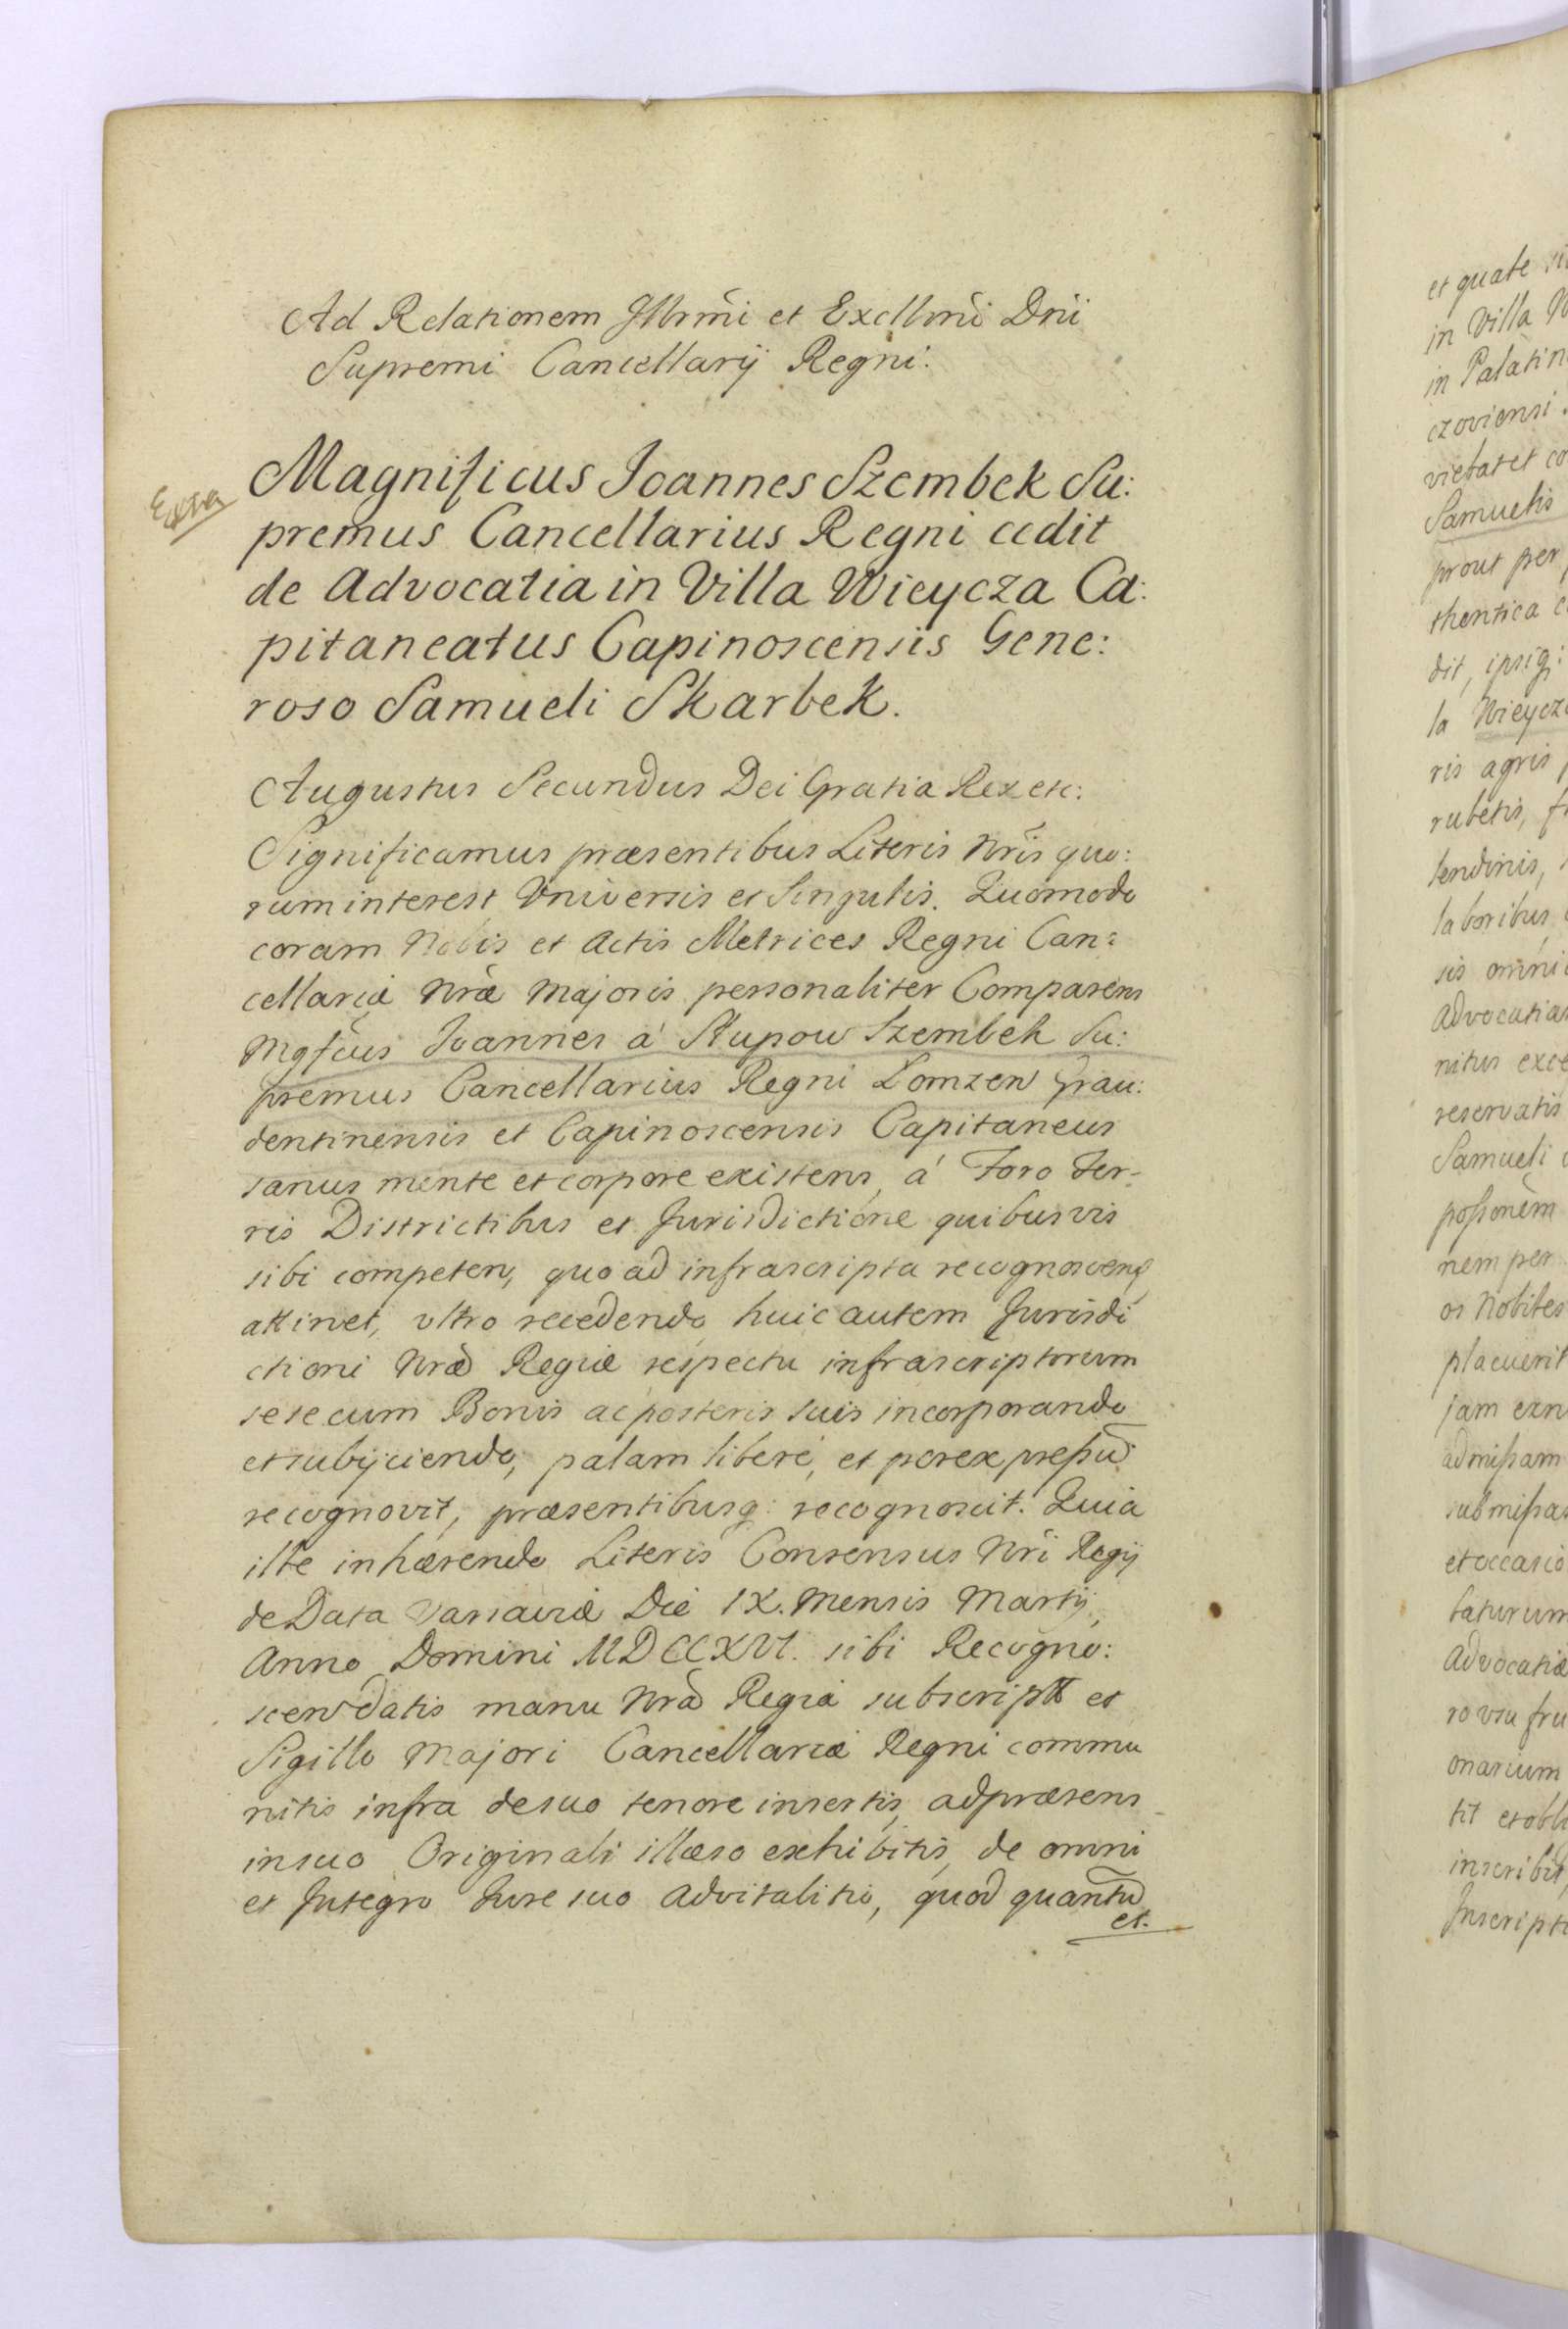 Ad Relationem Illrmi et Excllmi Dni
Supremi Cancellarij Regni.
Magnificus Joannes Szembek Su:
premus Cancellarius Regni cedit
de Advocatia in Villa Wieycza Ca:
pitaneatus Capinoscensis Gene:
roso Samueli Skarbek.
Augustus Secundus Dei Gratia Rex etc:
Significamus præsentibus Literis Nris quo:
rum interest Universis et Singulis. Quomodo
coram Nobis et Actis Metrices Regni Can:
cellariæ Nræ Majoris personaliter Comparens
Mgfcus Joannes à Słupow Szembek Su:
premus Cancellarius Regni Lomzen Grau:
dentinensis et Capinoscensis Capitaneus
sanus mente et corpore existens, à Foro Ter-
ris Districtibus et Jurisdictione quibusvis
sibi competen, quo ad infrascripta recognoscend
attinet, ultro recedendo, huic autem Jurisdi
ctioni Nræ Regiæ respectu infrascriptorum
sese cum Bonis ac posteris suis incorporando
et subijciendo, palam libere, et per expressū
recognovit, præsentibusq: recognoscit. Quia
ille inhærendo Literis Consensus Nri Regij
de Data Varsaviæ Die IX. Mensis Martij,
Anno Domini MDCCXVI. sibi Recogno:
scen datis manu Nrâ Regiâ subscriptt et
Sigillo Majori Cancellariæ Regni commu
nitis infra de suo tenore insertis, ad præsens
in suo Originali illæso exhibitis, de omni
et Integro Jure suo Advitalitio, quod quantū
et.
et quale
in Villa
in Palatin
czoviensi
Samuelis
prout per
thentica
dit, ipsiq:
la Wieycz
ris agris
rubetis,
laboribus
sis omni
Advocatia
nitus exce
reservatis
Samueli
possonem
nem per
os Nobiles
placuerit
jam exn
admissam
submissa
et occasio
taturum
Advocatiæ
ro usu fru
onarium
tit et obli
inscribit,
Inscripti